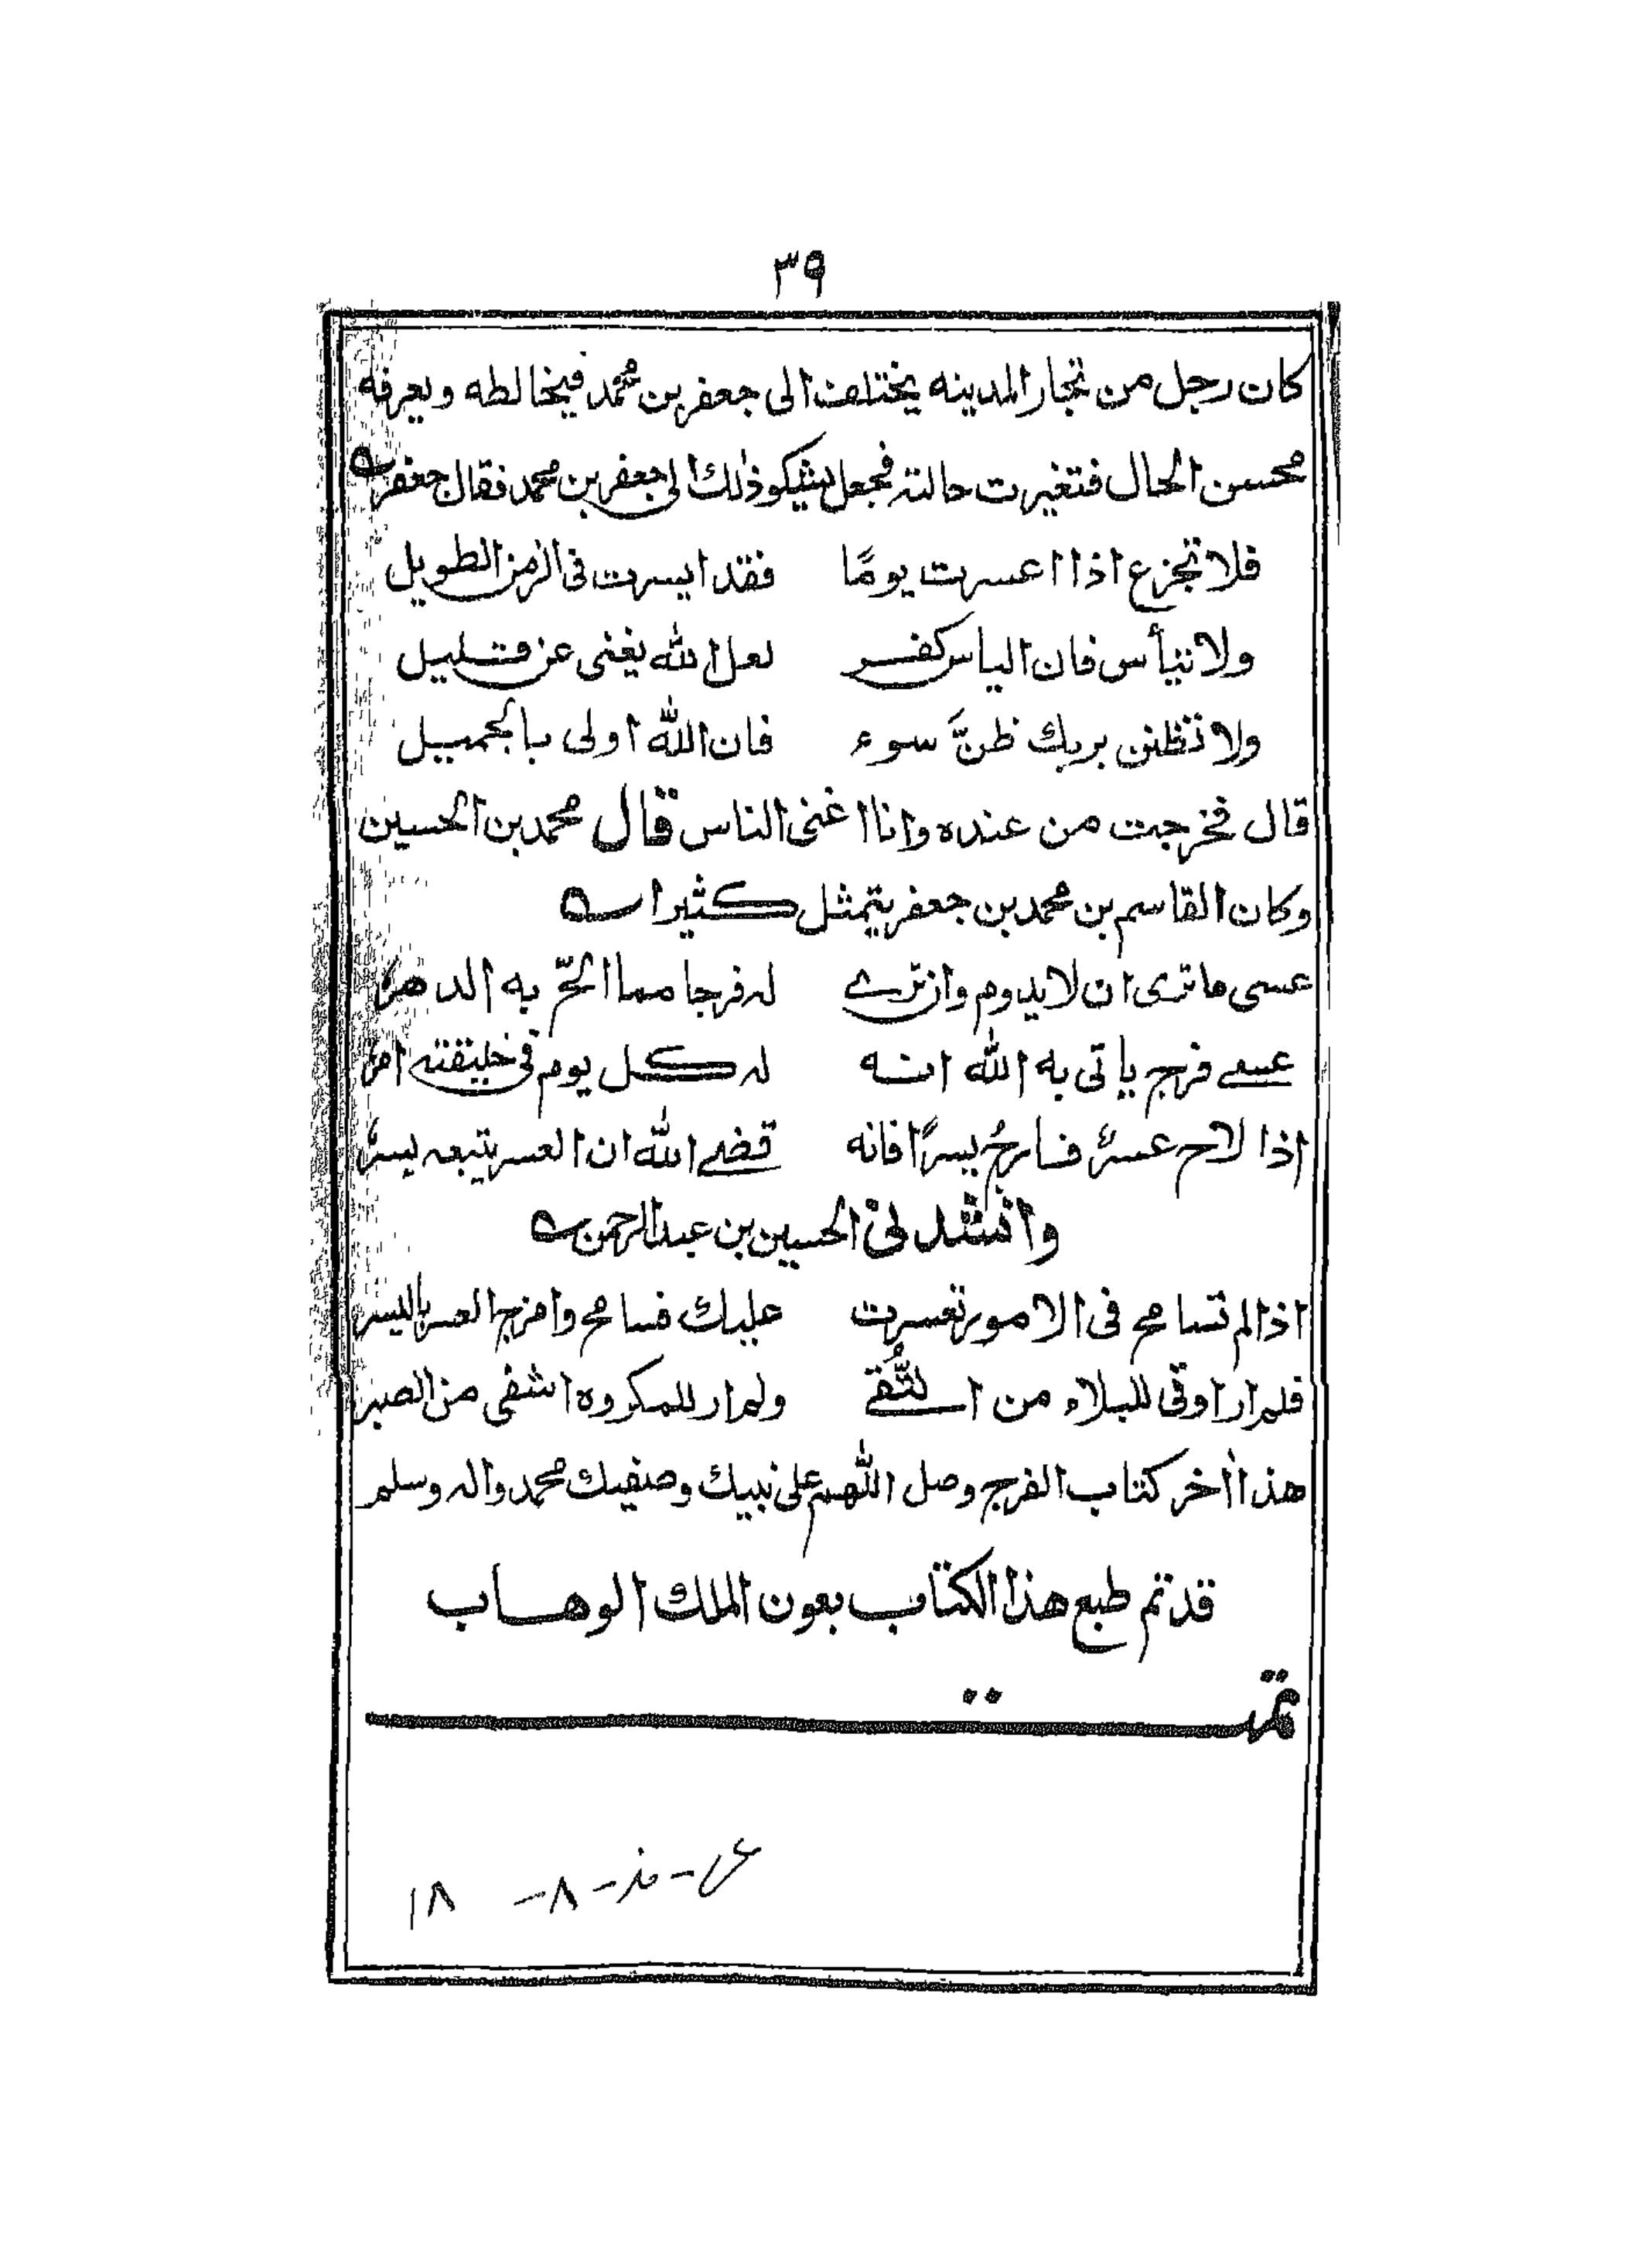 ٣٩
كان رجل من تجار المدينه يختلف الى جعفر بن محمد فيخالطه ويعرفه
محسن الحال فتغيرت حالته فجعل يشكو ذلك الى جعفر بن محمد فقال جعفر
فلا تجزع اذا اعسرت يومًا فقد ايسرت فى الزمن الطويل
ولا تيأس فان الياس كفر لعل الله يغنى عن قليل
ولا تظنن بربك ظنَّ سوء فان الله اولى بالجميل
قال فخرجت من عنده وانا اغنى الناس قال محمد بن الحسين
وكان القاسم بن محمد بن جعفر يتمثل كثيرا
عسى ما ترى ان لا يدوم وان ترے له فرجا مما الحّ به الدهرُ
عسے فرج ياتى به الله انه له كل يوم فى خليقته امرٌ
اذا لاح عسرٌ فارجُ يسرًا فانه قضے الله ان العسر يتبعه يسرٌ
وانشد نى الحسين بن عبد الرحمن
اذا لم تسامح فى الامور تعسرت عليك فسامح وامزج العسر باليسر
فلم ار اوقى للبلاء من التُّقے ولم ار للمكروه اشفى من الصبر
هذا اٰخر كتاب الفرج وصل اللّٰهم على نبيك وصفيك محمد واله وسلم
قد تم طبع هذا الكتاب بعون الملك الوهاب
تمت
٨ - ١٨